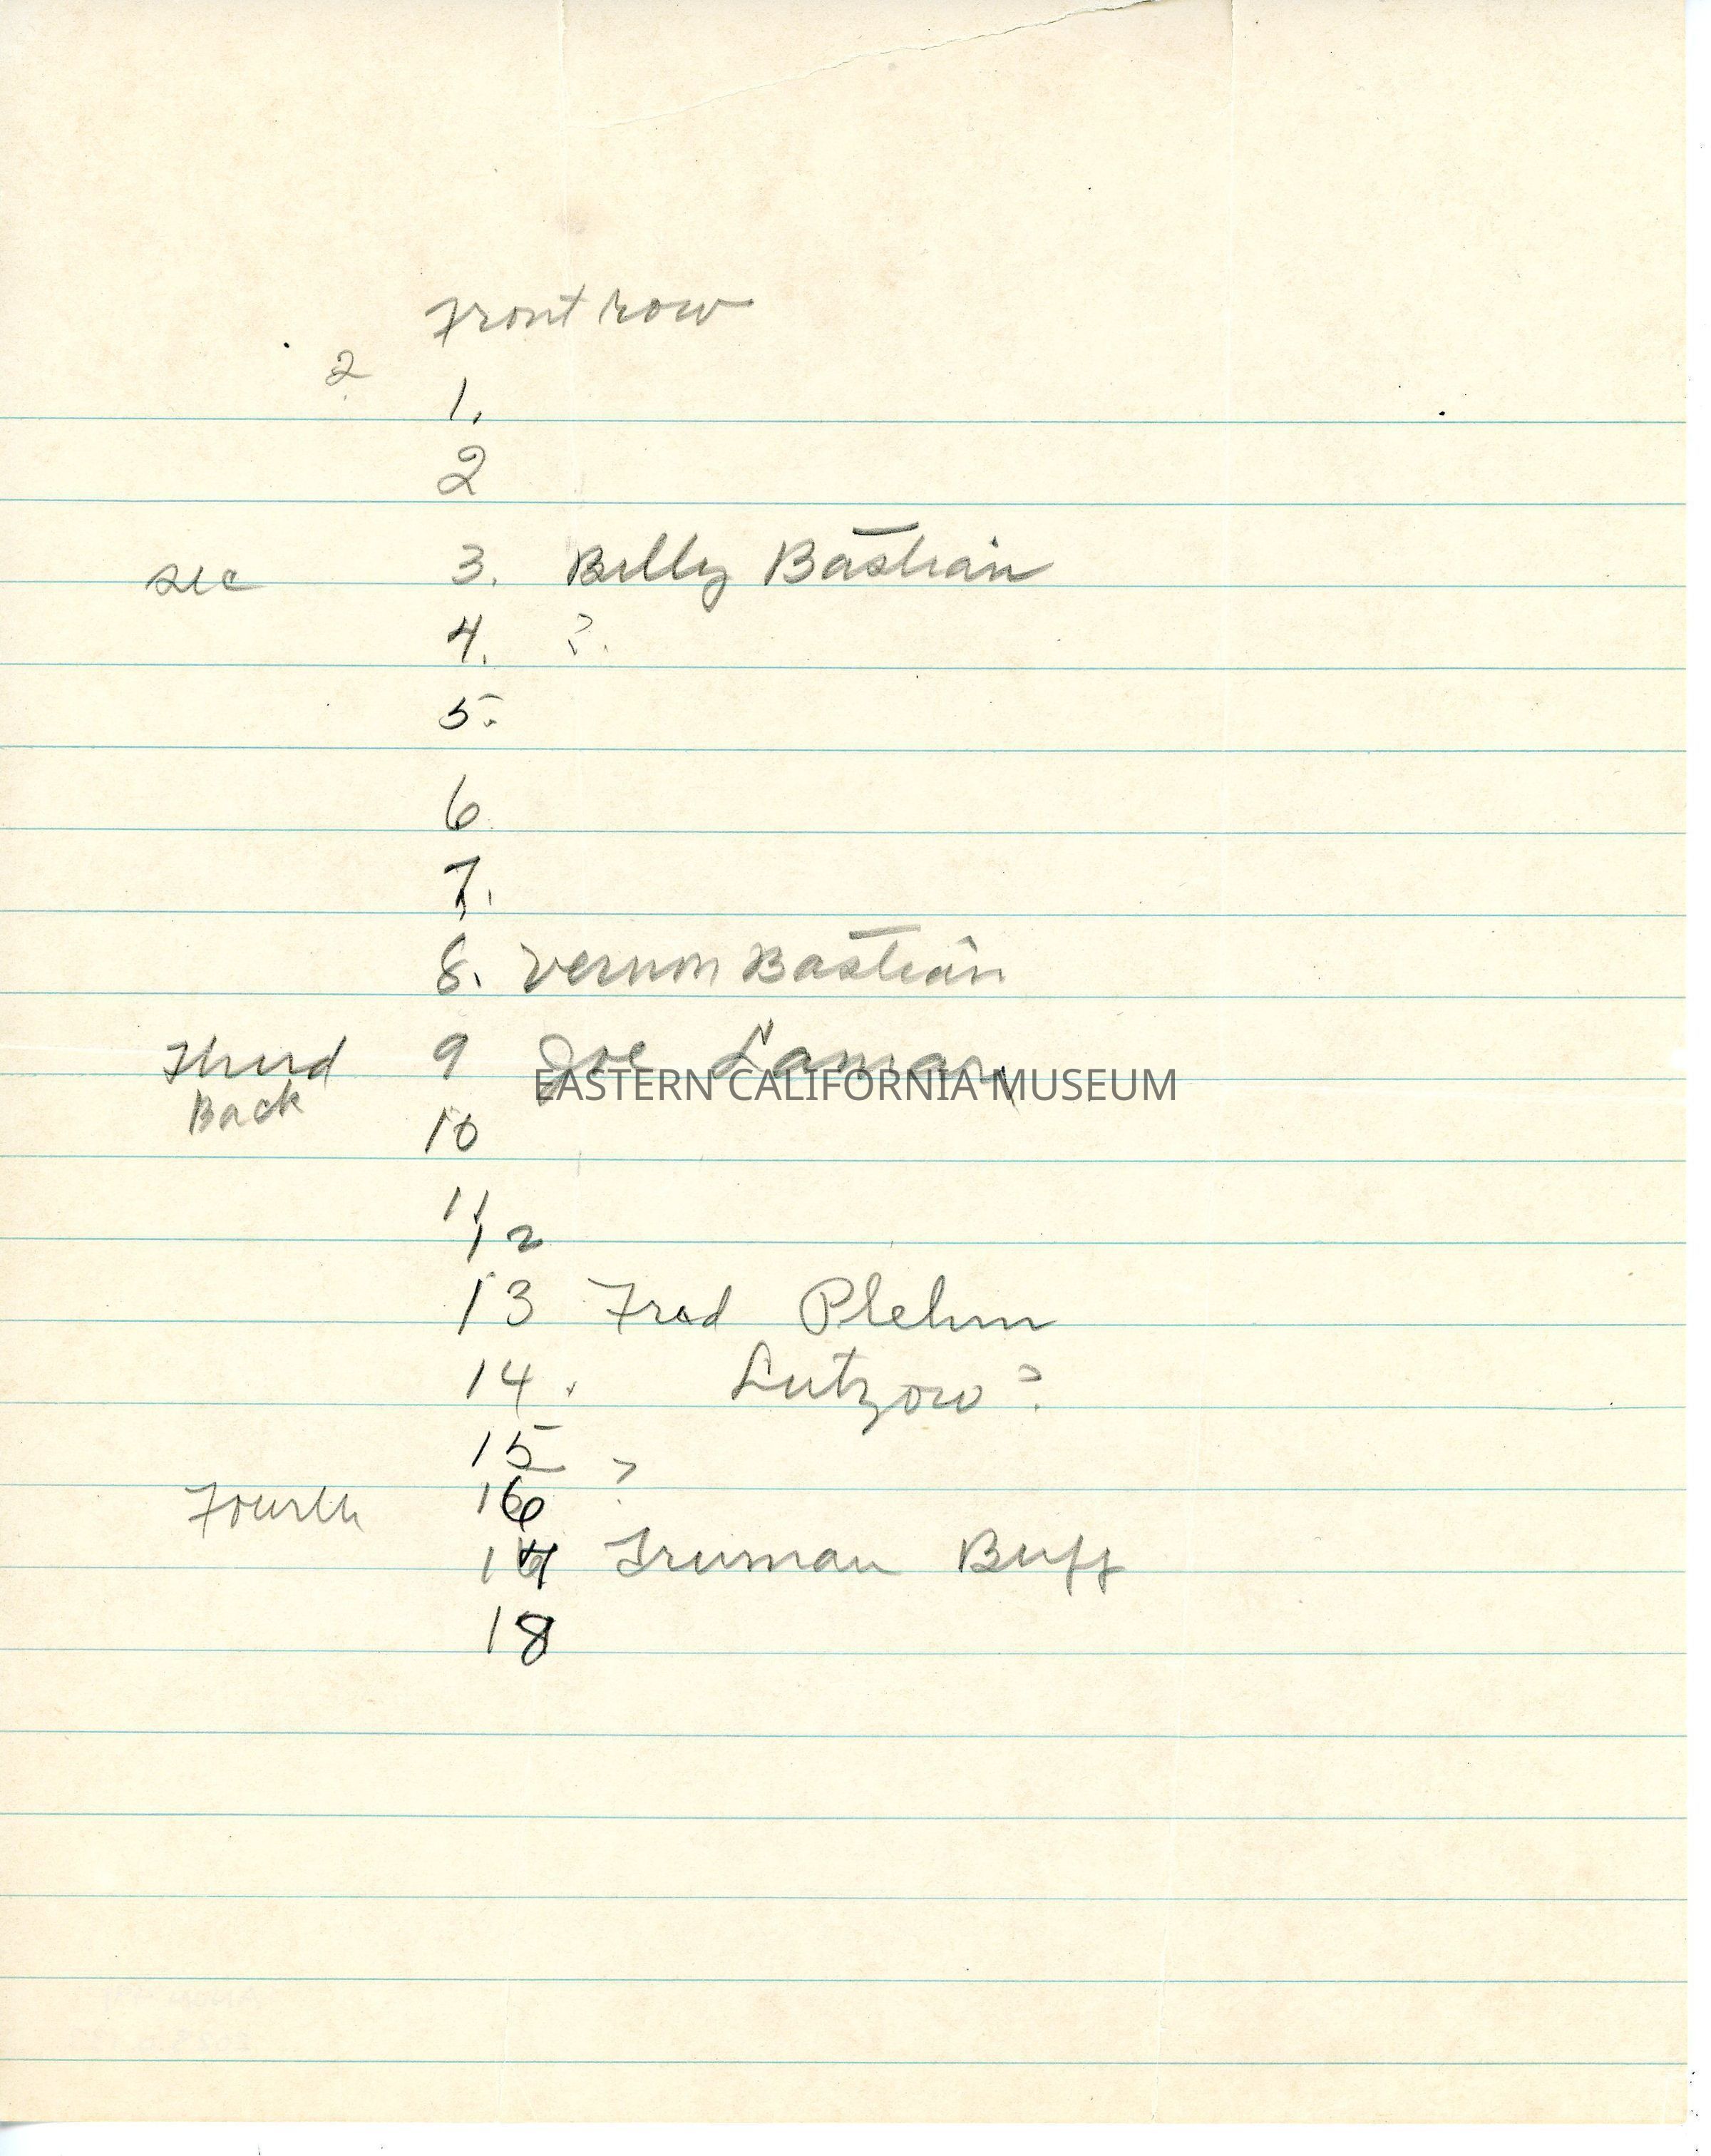 Front row
2
1.
2
sec 3. Billy Bastian
4. ?.
5.
6
7.
8. Vernon Bastian
Third 9 Joe Lamar
EASTERN CALIFORNIA MUSEUM
Back
10
11
12
13 Fred Plehm
14. Lutzow?
15 ?
Fourth 16
17 Truman Buff
18